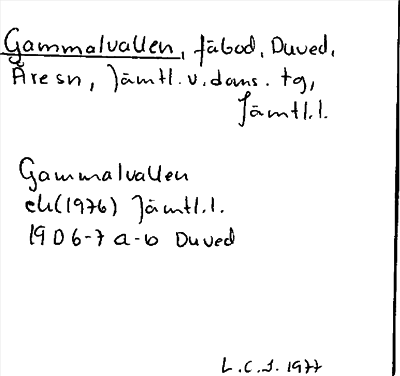 Gammalvallen, fäbod, Duved,
Åre sn, Jämtl. v. doms. tg,
Jämtl.l.
Gammalvallen
ek (1976) Jämtl.l.
1906-7 a-b Duved
L.C.J. 1977